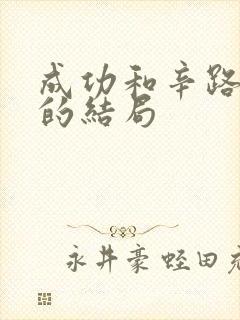 成功和辛路
的结局
永井豪 蛭田充